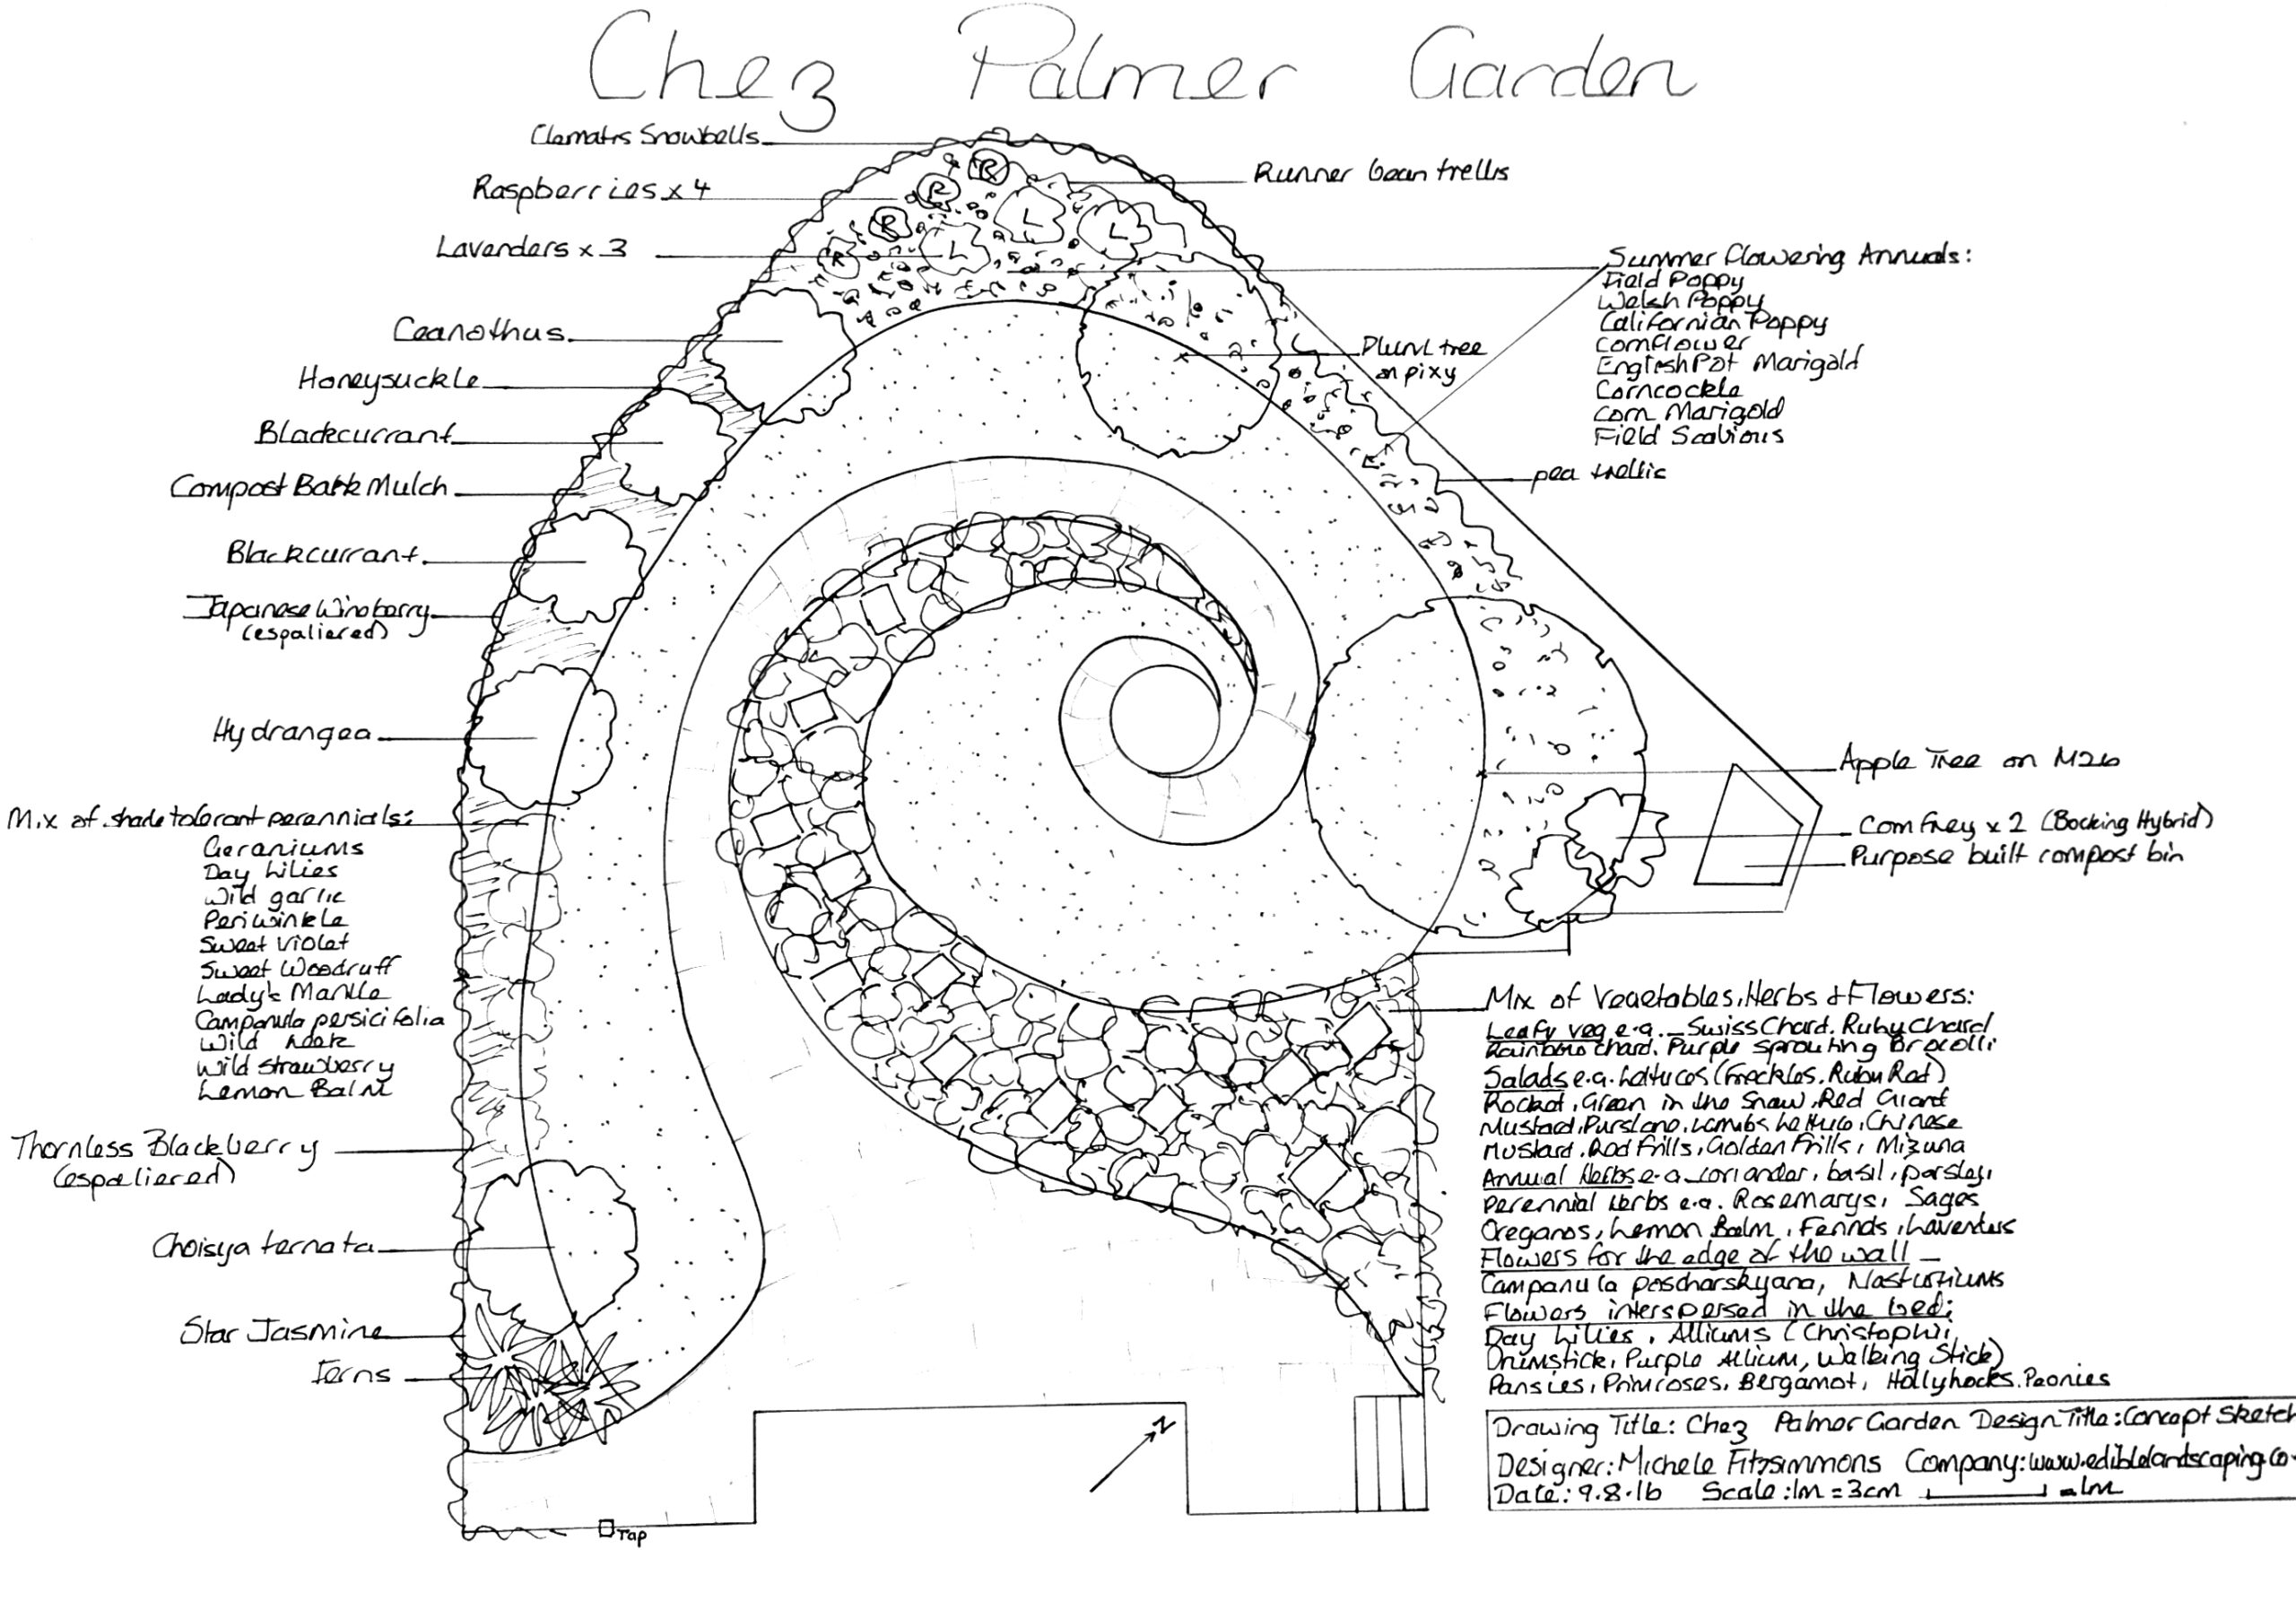 Chez Palmer Garden
Clematis Snowbells
Raspberries x 4
Lavenders x 3
Ceanothus
Honeysuckle
Blackcurrant
Compost Bark Mulch
Blackcurrant
Japanese Wineberry
(espaliered)
Hydrangea
Mix of shade tolerant perennials:
Geraniums
Day Lilies
Wild garlic
Periwinkle
Sweet Violet
Sweet Woodruff
Lady's Mantle
Campanula persicifolia
Wild
Wild Strawberry
Lemon Balm
Thornless Blackberry
(espaliered)
Choisya ternata
Star Jasmine
Ferns
R
R
R
R
L
L
L
Runner bean trellis
Summer Flowering Annuals:
Field Poppy
Welsh Poppy
Californian Poppy
Cornflower
English Pot Marigold
Corncockle
Corn Marigold
Field Scabious
Plum tree
on pixy
pea trellic
Apple Tree on M26
Comfrey x 2 (Bocking Hybrid)
Purpose built compost bin
Mix of Vegetables, Herbs & Flowers:
Leafy veg e.g. - Swiss Chard, Ruby Chard
Rainbow Chard, Purple Sprouting Brocolli
Salads e.g. Lettuces (Freckles, Ruby Red)
Rocket, Green in the Snow, Red Giant
Mustard, Purslane, Lambs Lettuce, Chinese
Mustard, Red Frills, Golden Frills, Mizuna
Annual Herbs e.g. coriander, basil, parsley,
Perennial Herbs e.g. Rosemarys, Sages
Oreganos, Lemon Balm, Fennels, Lavenders
Flowers for the edge of the wall -
Campanula poscharskyana, Nasturtiums
Flowers interspersed in the bed:
Day Lilies, Alliums (Christophii,
Drumstick, Purple Allium, Walking Stick)
Pansies, Primroses, Bergamot, Hollyhocks. Peonies
Drawing Title: Chez Palmer Garden Design Title: Concept Sketch
Designer: Michele Fitzsimmons Company: www.ediblelandscaping.co.
Date: 9.8.16 Scale: 1m = 3cm = 1m
N
Tap